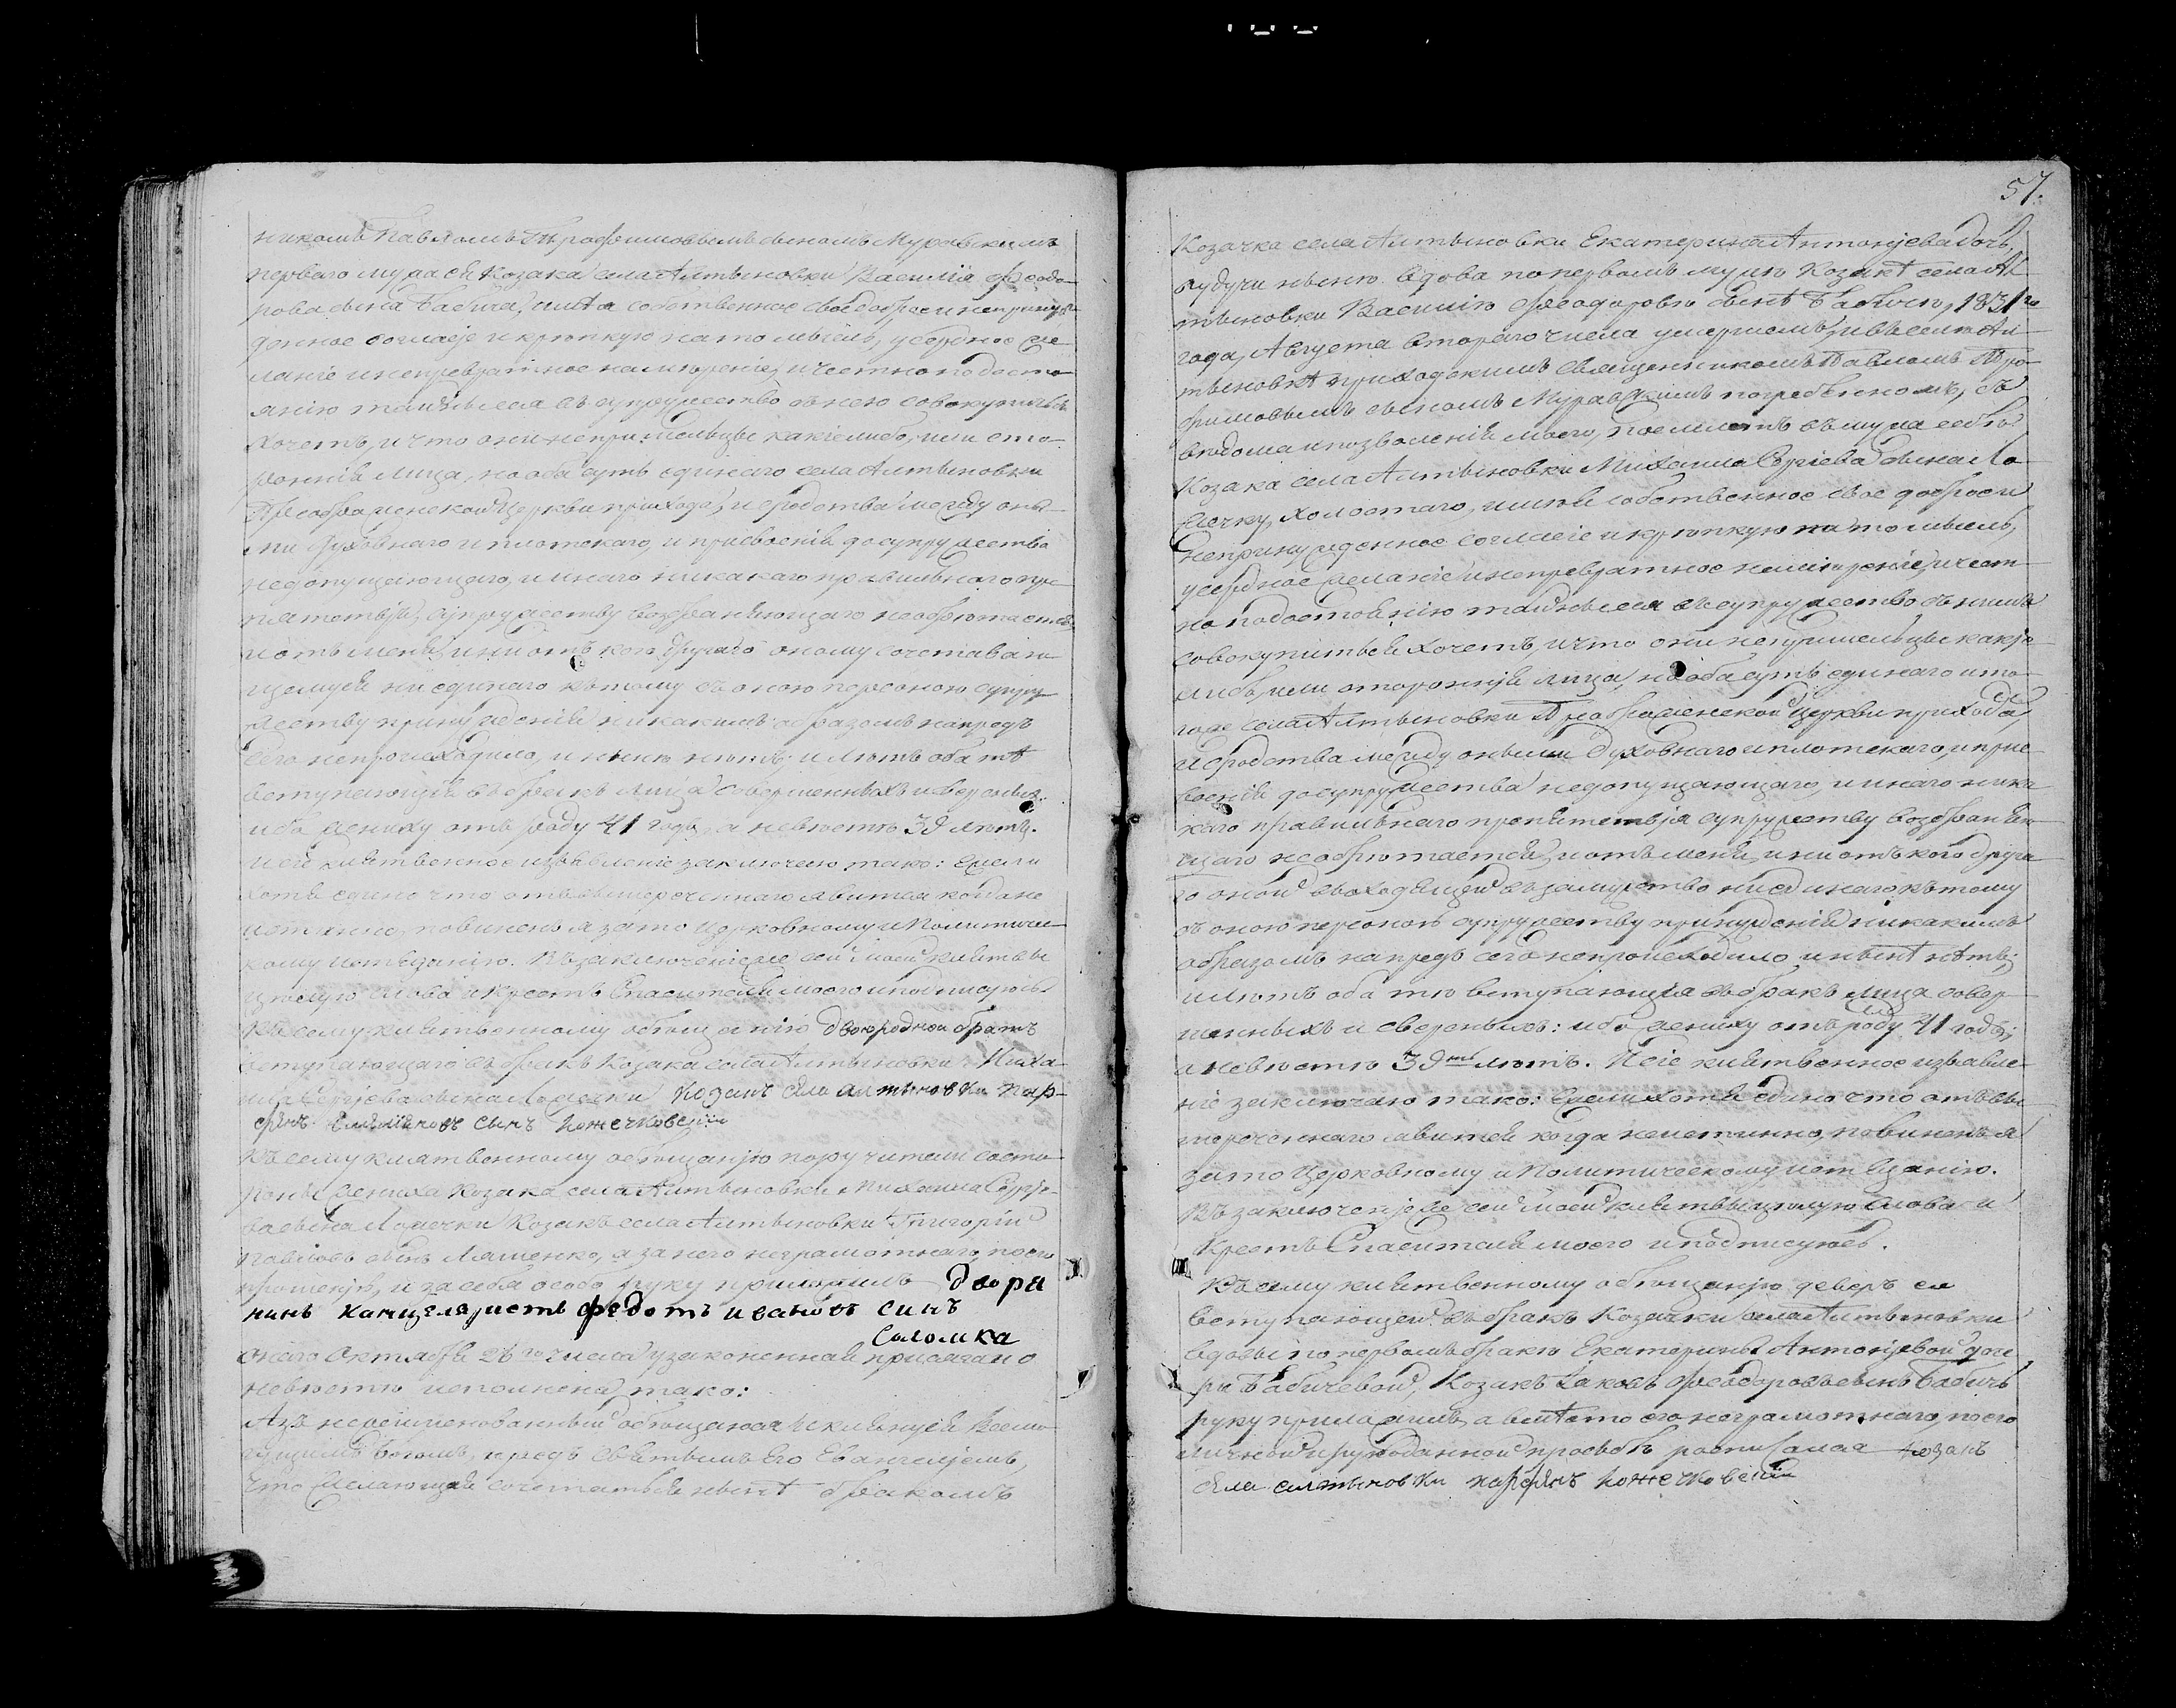 никомъ Павломъ Трофимовымъ сыномъ Муравскимъ
перваго мужа ея Козака села Алтыновки Василія Феодо-
рова сына Бабича, имѣя собственное свое доброе и непринуж-
денное согласіе и крѣпкую на то мысль, усердное же-
ланіе и непревратное намѣреніе, и честно по досто-
янію таинъства въ супружество съ нею совокупиться
хочетъ, и что они не пришельцы какіе либо, или сто-
ронніи лица, но оба суть единаго села Алтыновки
Преображенской церкви прихода, и сродства между оны-
ми духовнаго и плотскаго, и присвоенія до супружества
недопущающаго, и инаго никакаго правильнаго пре-
пятствія, супружеству возбраняющаго не обрѣтается,
и отъ меня, и ни отъ кого другаго оному сочетаваю-
щемуся ни единаго къ тому съ оною персоною супру-
жеству принужденія никакимъ образомъ напредъ
сего не происходило, и нынѣ нѣтъ; и лѣтъ оба тѣ
вступающія въ бракъ лица совершенныхъ и сверслыхъ:
ибо жениху отъ роду 41 годъ, а невѣстѣ 39 лѣтъ.
И сіе клятвенное изъявленіе заключаю тако: Ежели
хотя едино что отъ вышереченнаго явится когда не
истинно, повиненъ я за то церковному и Политичес-
кому истязанію. Въ заключеніе же сей моей клятвы
цѣлую слова и Крестъ Спасителя моего и подписуюсь.
Къ сему клятвенному обѣщанію двоюродной братъ
вступающаго въ бракъ Козака села Алтыновки Миха-
ила Сергіева сына Ломачки Козакъ села алтыновки пар-
фѣнъ Емиліановъ сынъ ножечковскій
Къ сему клятвенному обѣщанію поручители состо-
роны жениха Козака села Алтыновки Михаила Сергіе-
ва сына Ломачки Козакъ села Алтыновки Григорій
Павловъ сынъ Ляшенко, а за него неграмотнаго, по его
прошенію, и за себя особо руку приложилъ двора
нинъ канцеляристъ федотъ ивановъ синъ
Соломка
онаго Октября 26го числа узаконенная присяга по
невѣстѣ исполнена, тако:
Азъ нижеименованный обѣщаюся и клянуся Всемо-
гущимъ Богомъ, предъ Святымъ Его Евангеліемъ,
что желающая сочетаться нынѣ бракомъ
57.
Козачка села Алтыновки Екатерина Антоніева дочь,
будучи нынѣ вдова по первомъ мужѣ Козакѣ села Ал-
тыновки Василію Феодорову сынѣ Бабичу, 1831го
года, Августа втораго числа умершемъ, и въ селѣ Ал-
тыновкѣ приходскимъ священникомъ Павломъ Тро-
фимовымъ сыномъ Муравскимъ погребенномъ, съ
вѣдома и позволенія моего, поемлетъ въ мужа себѣ
Козака села Алтыновки Михаила Сергіева сына Ло-
мачку, холостаго, имѣя собственное свое доброе и
непринужденное согласіе и крѣпкую на то мысль,
усердное желаніе и непревратное намѣреніе, и чест-
но по достоянію таинъства въ супружество съ нимъ
совокупиться хочетъ, и что они не пришельцы какіе
либо, или сторонніи лица, но оба суть единаго и то-
гоже села Алтыновки Преображенской церкви прихода,
и сродства между оными духовнаго и плотскаго, и прис-
военія до супружества недопущающаго, и инаго ника-
каго правильнаго препятствія супружеству возбраняю-
щаго не обрѣтается, и отъ меня, и ни отъ кого друга-
го оной входящей въ замужство ни единаго къ тому
съ оною персоною супружеству принужденія никакимъ
образомъ напредъ сего не происходило, и нынѣ нѣтъ;
и лѣтъ оба тѣ вступающія въ бракъ лица совер-
шенныхъ и сверслыхъ: ибо жениху отъ роду 41 годъ,
а невѣстѣ 39ть лѣтъ. И сіе клятвенное изъявле-
ніе заключаю тако: Ежели хотя едино что отъ вы-
шереченнаго явится когда неистинно, повиненъ я
за то Церковному и Политическому истязанію.
Въ заключеніе же сей моей клятвы цѣлую слова и
Крестъ Спасителя моего и подписуюсь.
Къ сему клятвенному обѣщанію деверъ ея
вступающей въ бракъ Козачки села Алтыновки
вдовы по первомъ бракѣ Екатерины Антоніевой доче
ри Бабичевой, Козакъ Іаковъ Феодоровъ сынъ Бабичъ
руку приложилъ, а вмѣсто его неграмотнаго, по его
личной и рукоданной прозьбѣ росписался козакъ
села алтыновки парфѣнъ ножечковскій